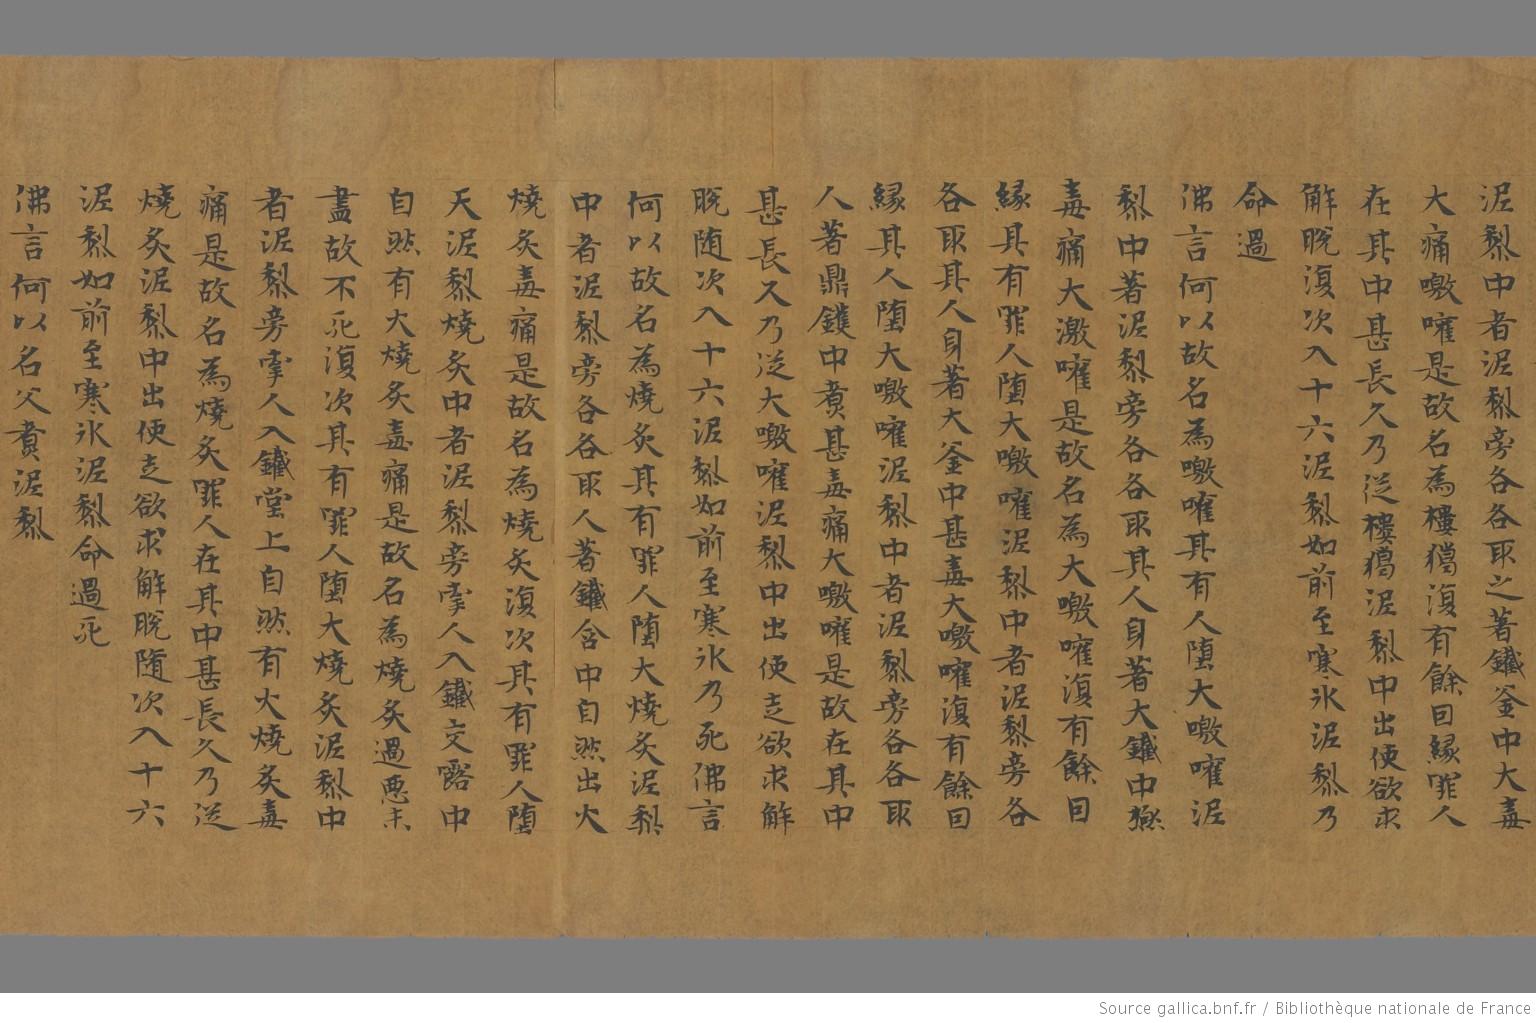 泥犁中者泥犁旁各各取之著鐵釜中大毒
大痛噭嚾是故名為樓獦復有餘因緣罪人
在其中甚長久乃從樓獦泥犁中出便欲求
解脫復次入十六泥犁如前至寒氷泥犁乃
命過
佛言何以故名為噭嚾其有人墮大噭嚾泥
犁中著泥犁旁各各取其人身著大鐵中
毒痛大激嚾是故名為大噭嚾復有餘因
緣其有罪人墮大噭嚾泥犁中者泥犁旁各
各取其人身著大釜中甚毒大噭嚾復有餘因
緣其人墮大噭嚾泥犁中者泥犁旁各各取
人著鼎鑊中煑甚毒痛大噭嚾是故在其中
甚長久乃從大噭嚾泥犁中出便走欲求解
脫随次入十六泥犁如前至寒氷乃死佛言
何以故名為燒炙其有罪人墮大燒炙泥犁
中者泥犁旁各各取人著鐵舍中自然出火
燒炙毒痛是故名為燒炙復次其有罪人墮
天泥犁燒炙中者泥犁旁掌人入鐵交露中
自然有火燒炙毒痛是故名為燒炙過惡未
盡故不死復次其有罪人墮大燒炙泥犁中
者泥犁旁掌人入鐵堂上自然有火燒炙毒
痛是故名為燒炙罪人在其中甚長久乃從
燒炙泥犁中出便走欲求解脫随次入十六
泥犁如前至寒氷泥犁命過死
佛言何以名父煑泥犁
Source gallica.bnf.fr / Bibliothèque nationale de France